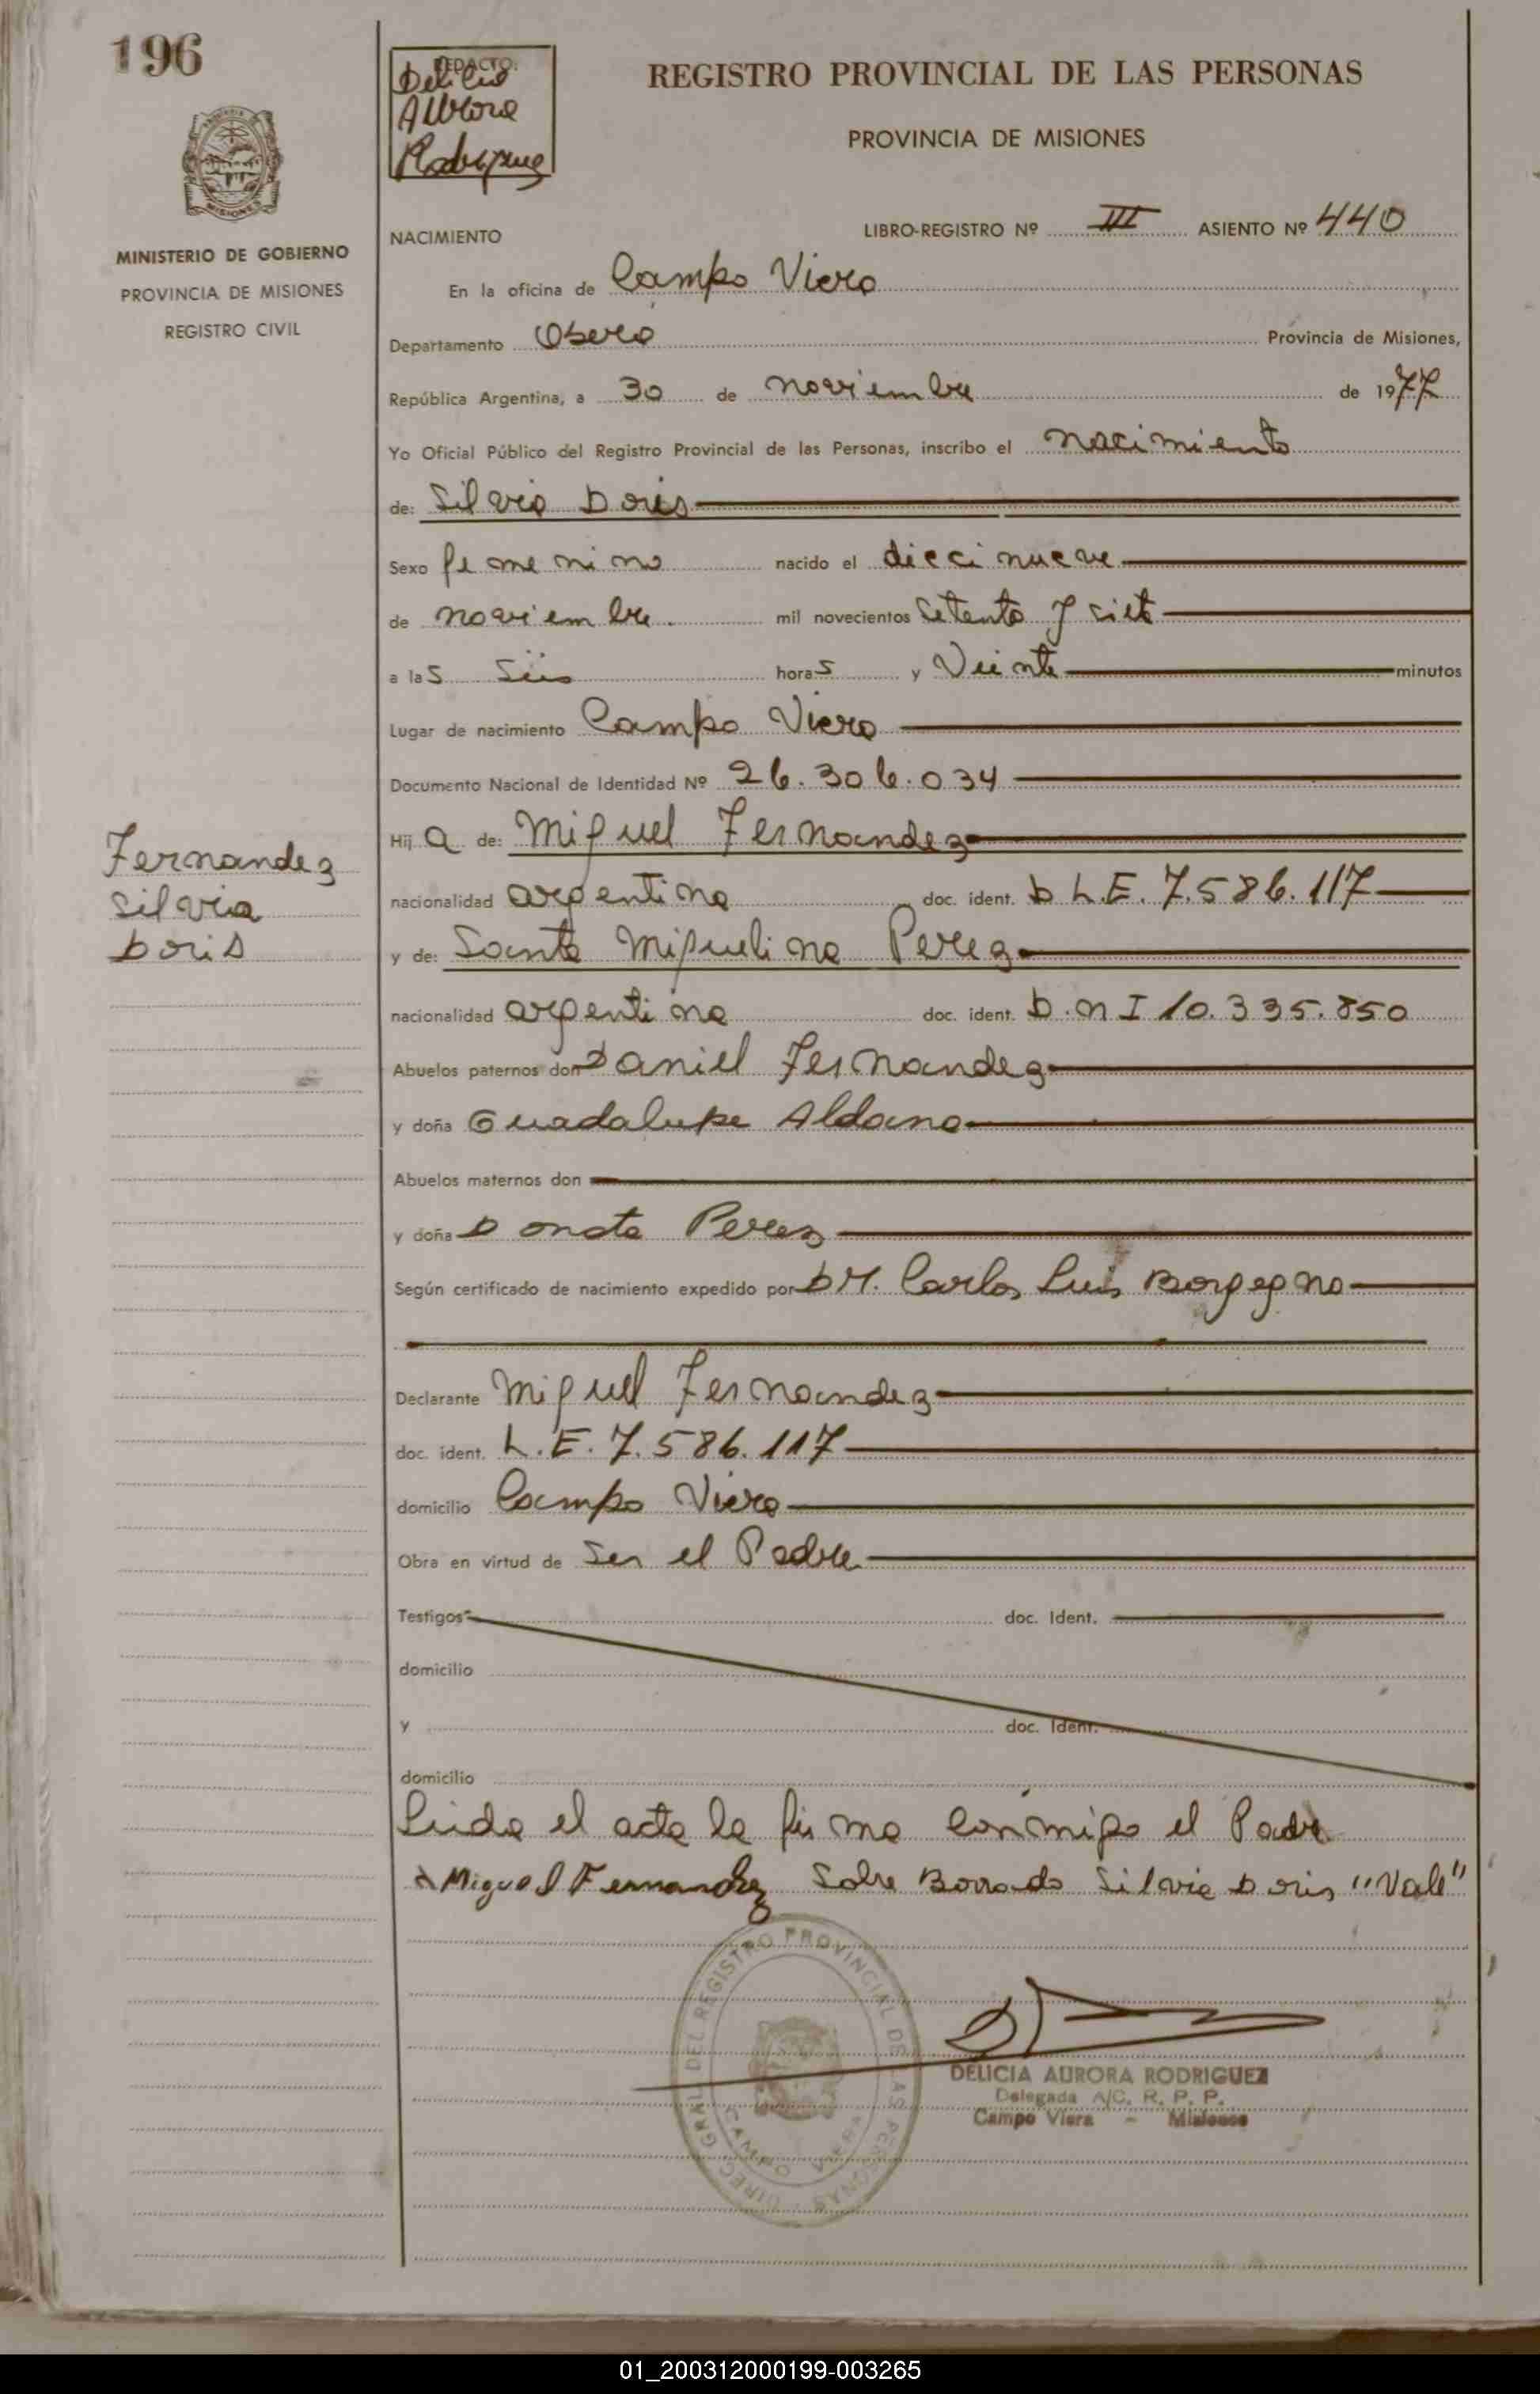 196
REDACTO:
Delicia
Aurora
Rodriguez
REGISTRO PROVINCIAL DE LAS PERSONAS
PROVINCIA DE MISIONES
MISIONES
MINISTERIO DE GOBIERNO
PROVINCIA DE MISIONES
REGISTRO CIVIL
NACIMIENTO
LIBRO-REGISTRO Nº III ASIENTO Nº 440
En la oficina de Campo Viera
Departamento Obera Provincia de Misiones,
República Argentina, a 30 de noviembre de 1977
Yo Oficial Público del Registro Provincial de las Personas, inscribo el nacimiento
de: Silvia Doris
Sexo femenino nacido el diecinueve
de noviembre. mil novecientos setenta y siete
a las seis horas y veinte minutos
Lugar de nacimiento Campo Viera
Documento Nacional de Identidad Nº 26.306.034
Hija de: Miguel Fernandez
Fernandez
Silvia
Doris
nacionalidad argentina doc. ident. D L.E. 7.586.117
y de: Santa Miguelina Perez
nacionalidad argentina doc. ident. D.N I 10.335.850
Abuelos paternos don Daniel Fernandez
y doña Guadalupe Aldana
Abuelos maternos don
y doña Donata Perez
Según certificado de nacimiento expedido por DR. Carlos Luis Borgegno
Declarante Miguel Fernandez
doc. ident. L.E. 7.586.117
domicilio Campo Viera
Obra en virtud de ser el Padre
Testigos doc. Ident.
domicilio
y doc. Ident.
domicilio
Leida el acta la firma conmigo el Padre
Miguel Fernandez Sobre Borrado Silvia Doris "Vale"
DIREC. GRAL. DEL REGISTRO PROVINCIAL DE LAS PERSONAS
CAMPO VIERA
DELICIA AURORA RODRIGUEZ
Delegada A/C. R. P. P.
Campo Viera - Misiones
01_200312000199-003265